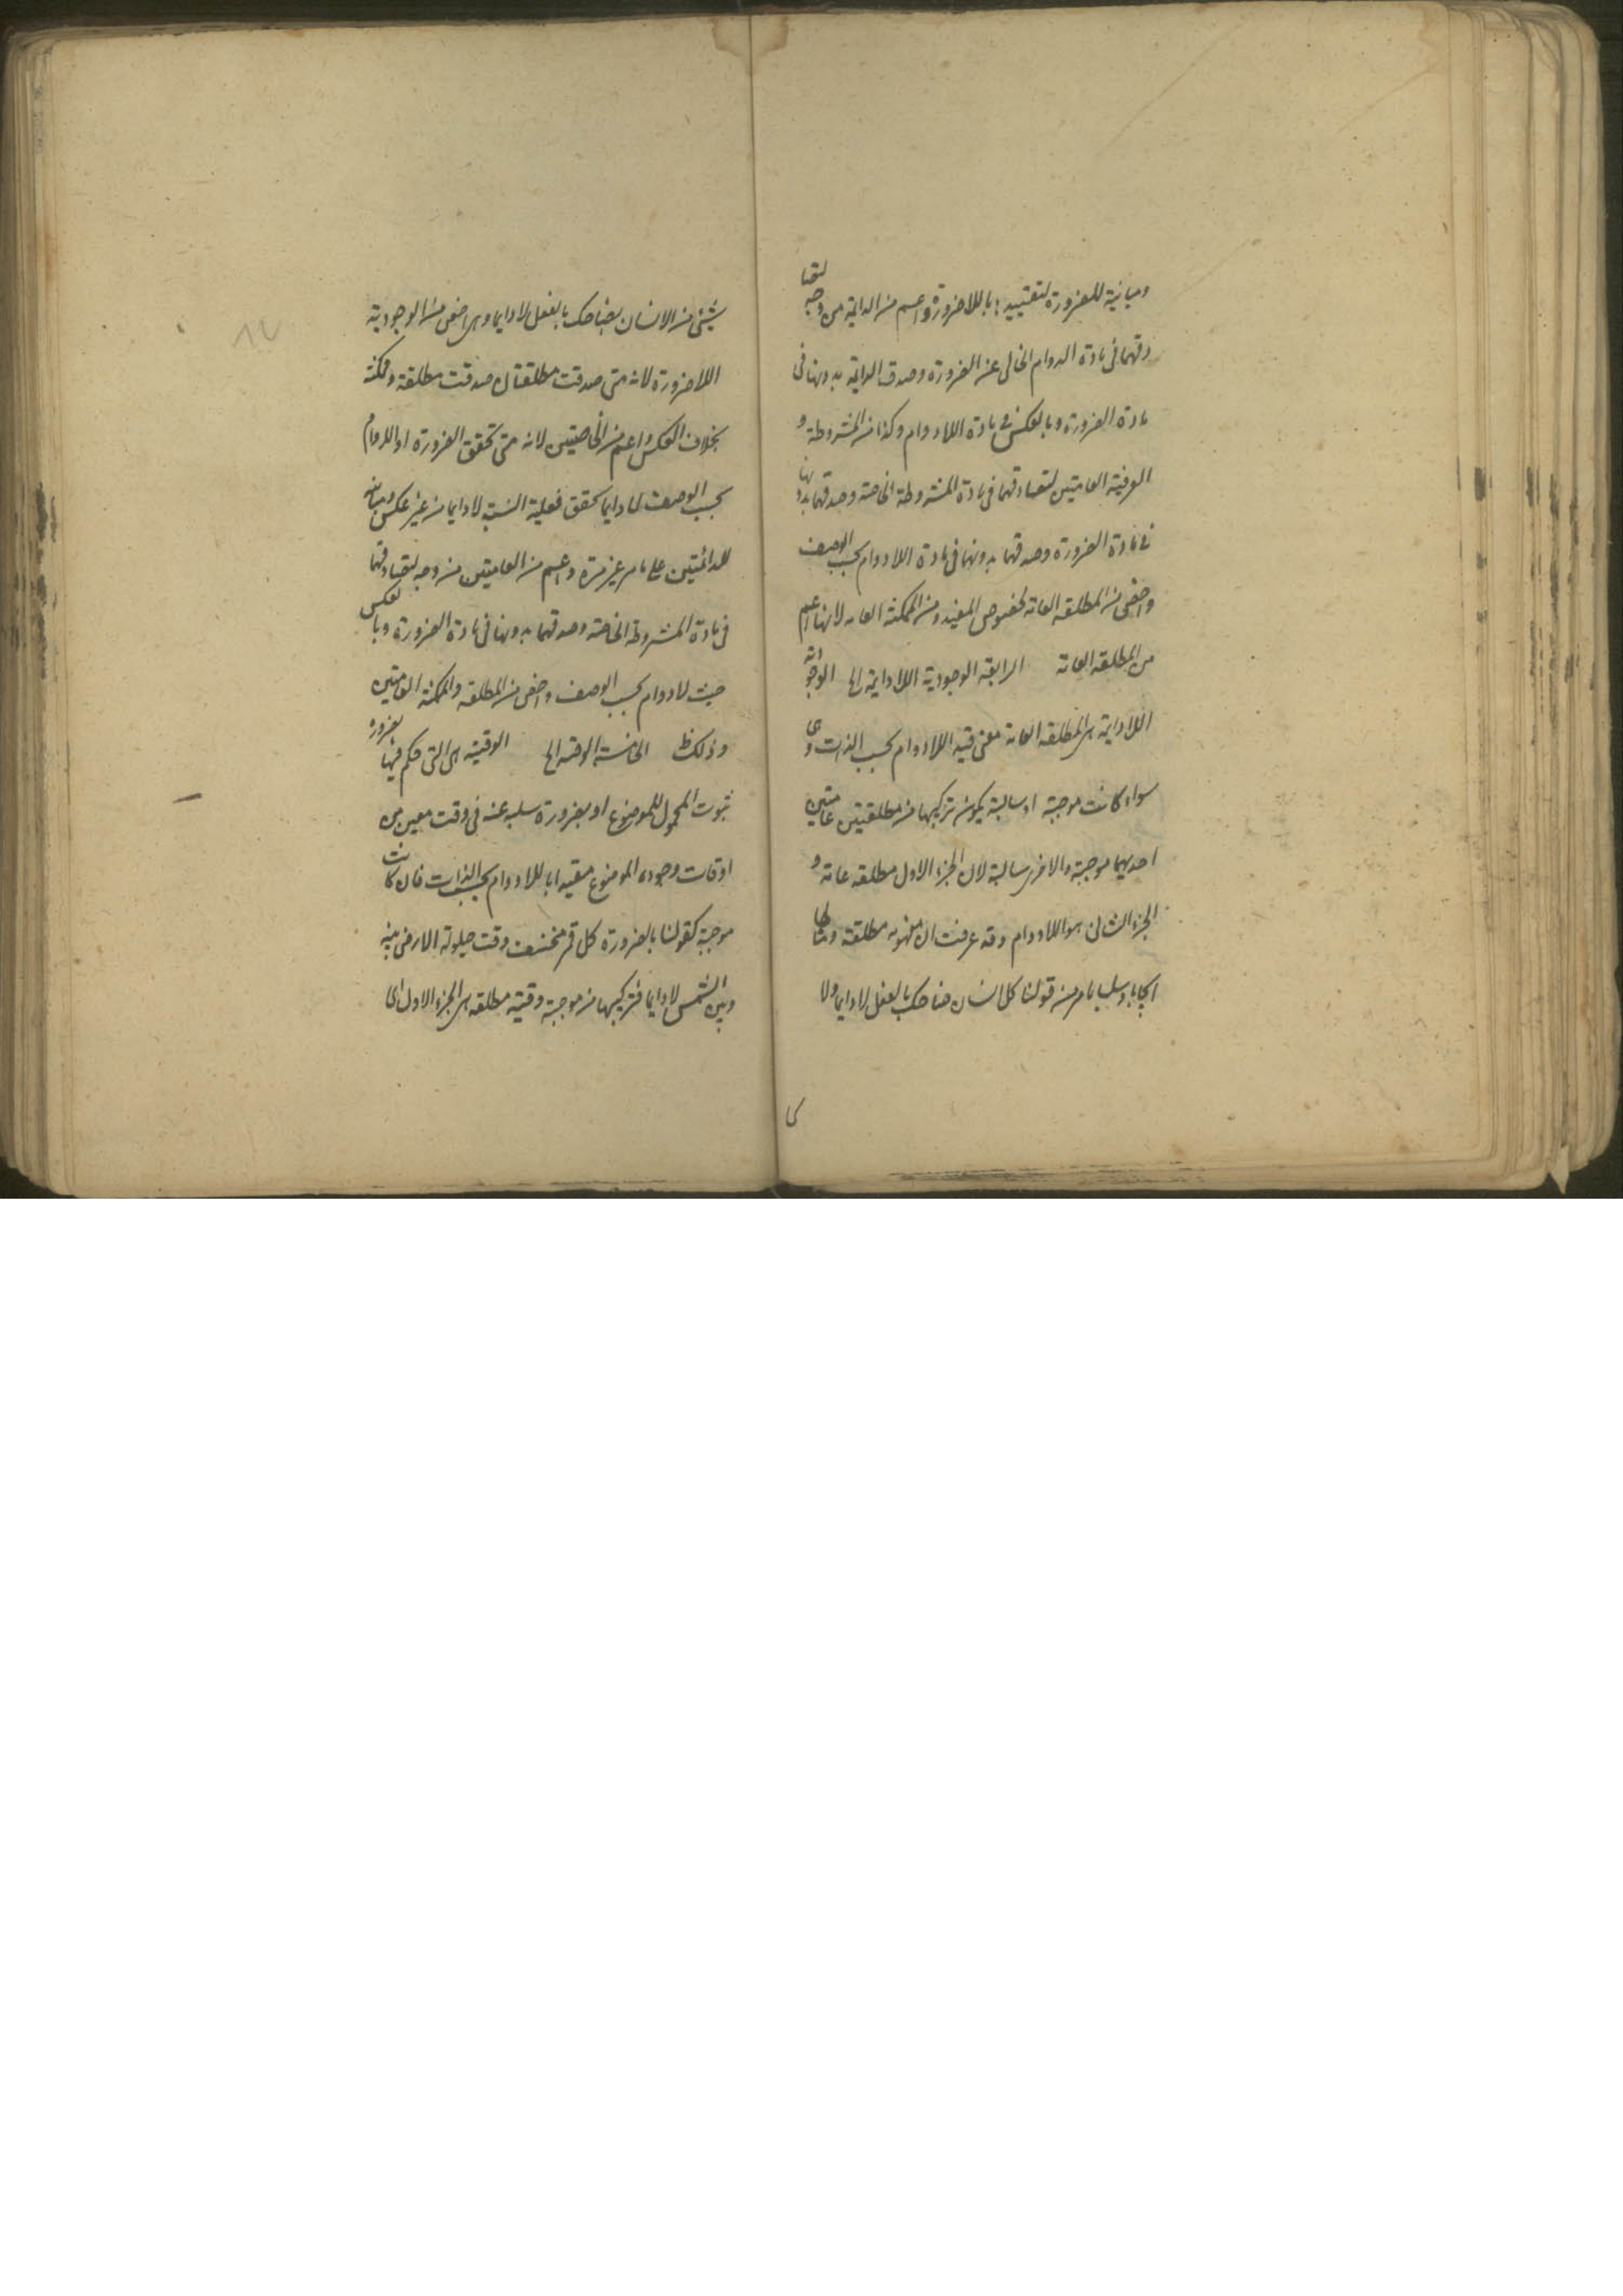 ومباينة للضرورة لتقييدها باللاضرورة واعم من الدايمة من وجه لتصا
دقهما فى مادة الدوام الخالى عن الضرورة وصدق الدايمة بدونها فى
مادة الضرورة وبالعكس فى مادة اللادوام وكذا من المشروطة و
العرفية العامتين لتصادقهما فى مادة المشروطة الخاصة وصدقهما بدونها
فى مادة الضرورة وصدقها بدونهما فى مادة اللادوام بحسب الوصف
واخص من المطلقه العامة لخصوص المقيد ومن الممكنة العامه لانها اعم
من المطلقه العامة الرابعة الوجودية اللادايمة الخ الوجودية
اللادايمة هى المطلقه العامة مع قيد اللادوام بحسب الذات وهى
سواء كانت موجبة او سالبة يكون تركيبها من مطلقتين عامتين
احديهما موجبة والاخرى سالبة لان الجزء الاول مطلقه عامة و
الجزء الثانى هو اللادوام وقد عرفت ان مفهومه مطلقة ومثالها
ايجابا وسلبا ما مر من قولنا كل انسان ضاحك بالفعل لادايما ولا
شئ من الانسان بضاحك بالفعل لادايما وهى اخص من الوجودية
اللاضرورة لانه متى صدقت مطلقتان صدقت مطلقة وممكنة
بخلاف العكس واعم من الخاصتين لانه متى تحقق الضرورة او الدوام
بحسب الوصف لادايما تحقق فعلية النسبة لادايما من غير عكس ومباينة
للدائمتين على ما مر غير مرة واعم من العامتين من وجه لتصادقهما
فى مادة المشروطه الخاصة وصدقهما بدونها فى مادة الضرورة وبالعكس
حيث لادوام بحسب الوصف واخص من المطلقه والممكنة العامتين
وذلك ظ الخامسة الوقتيه الخ الوقتية هى التى حكم فيها بضرورة
ثبوت المحمول للموضوع او بضرورة سلبه عنه فى وقت معين من
اوقات وجود الموضوع مقيدا باللادوام بحسب الذات فان كانت
موجبة كقولنا بالضرورة كل قمر منخسف وقت حيلولة الارض بينه
وبين الشمس لادايما فتركيبها من موجبة وقتية مطلقه هى الجزء الاول اى